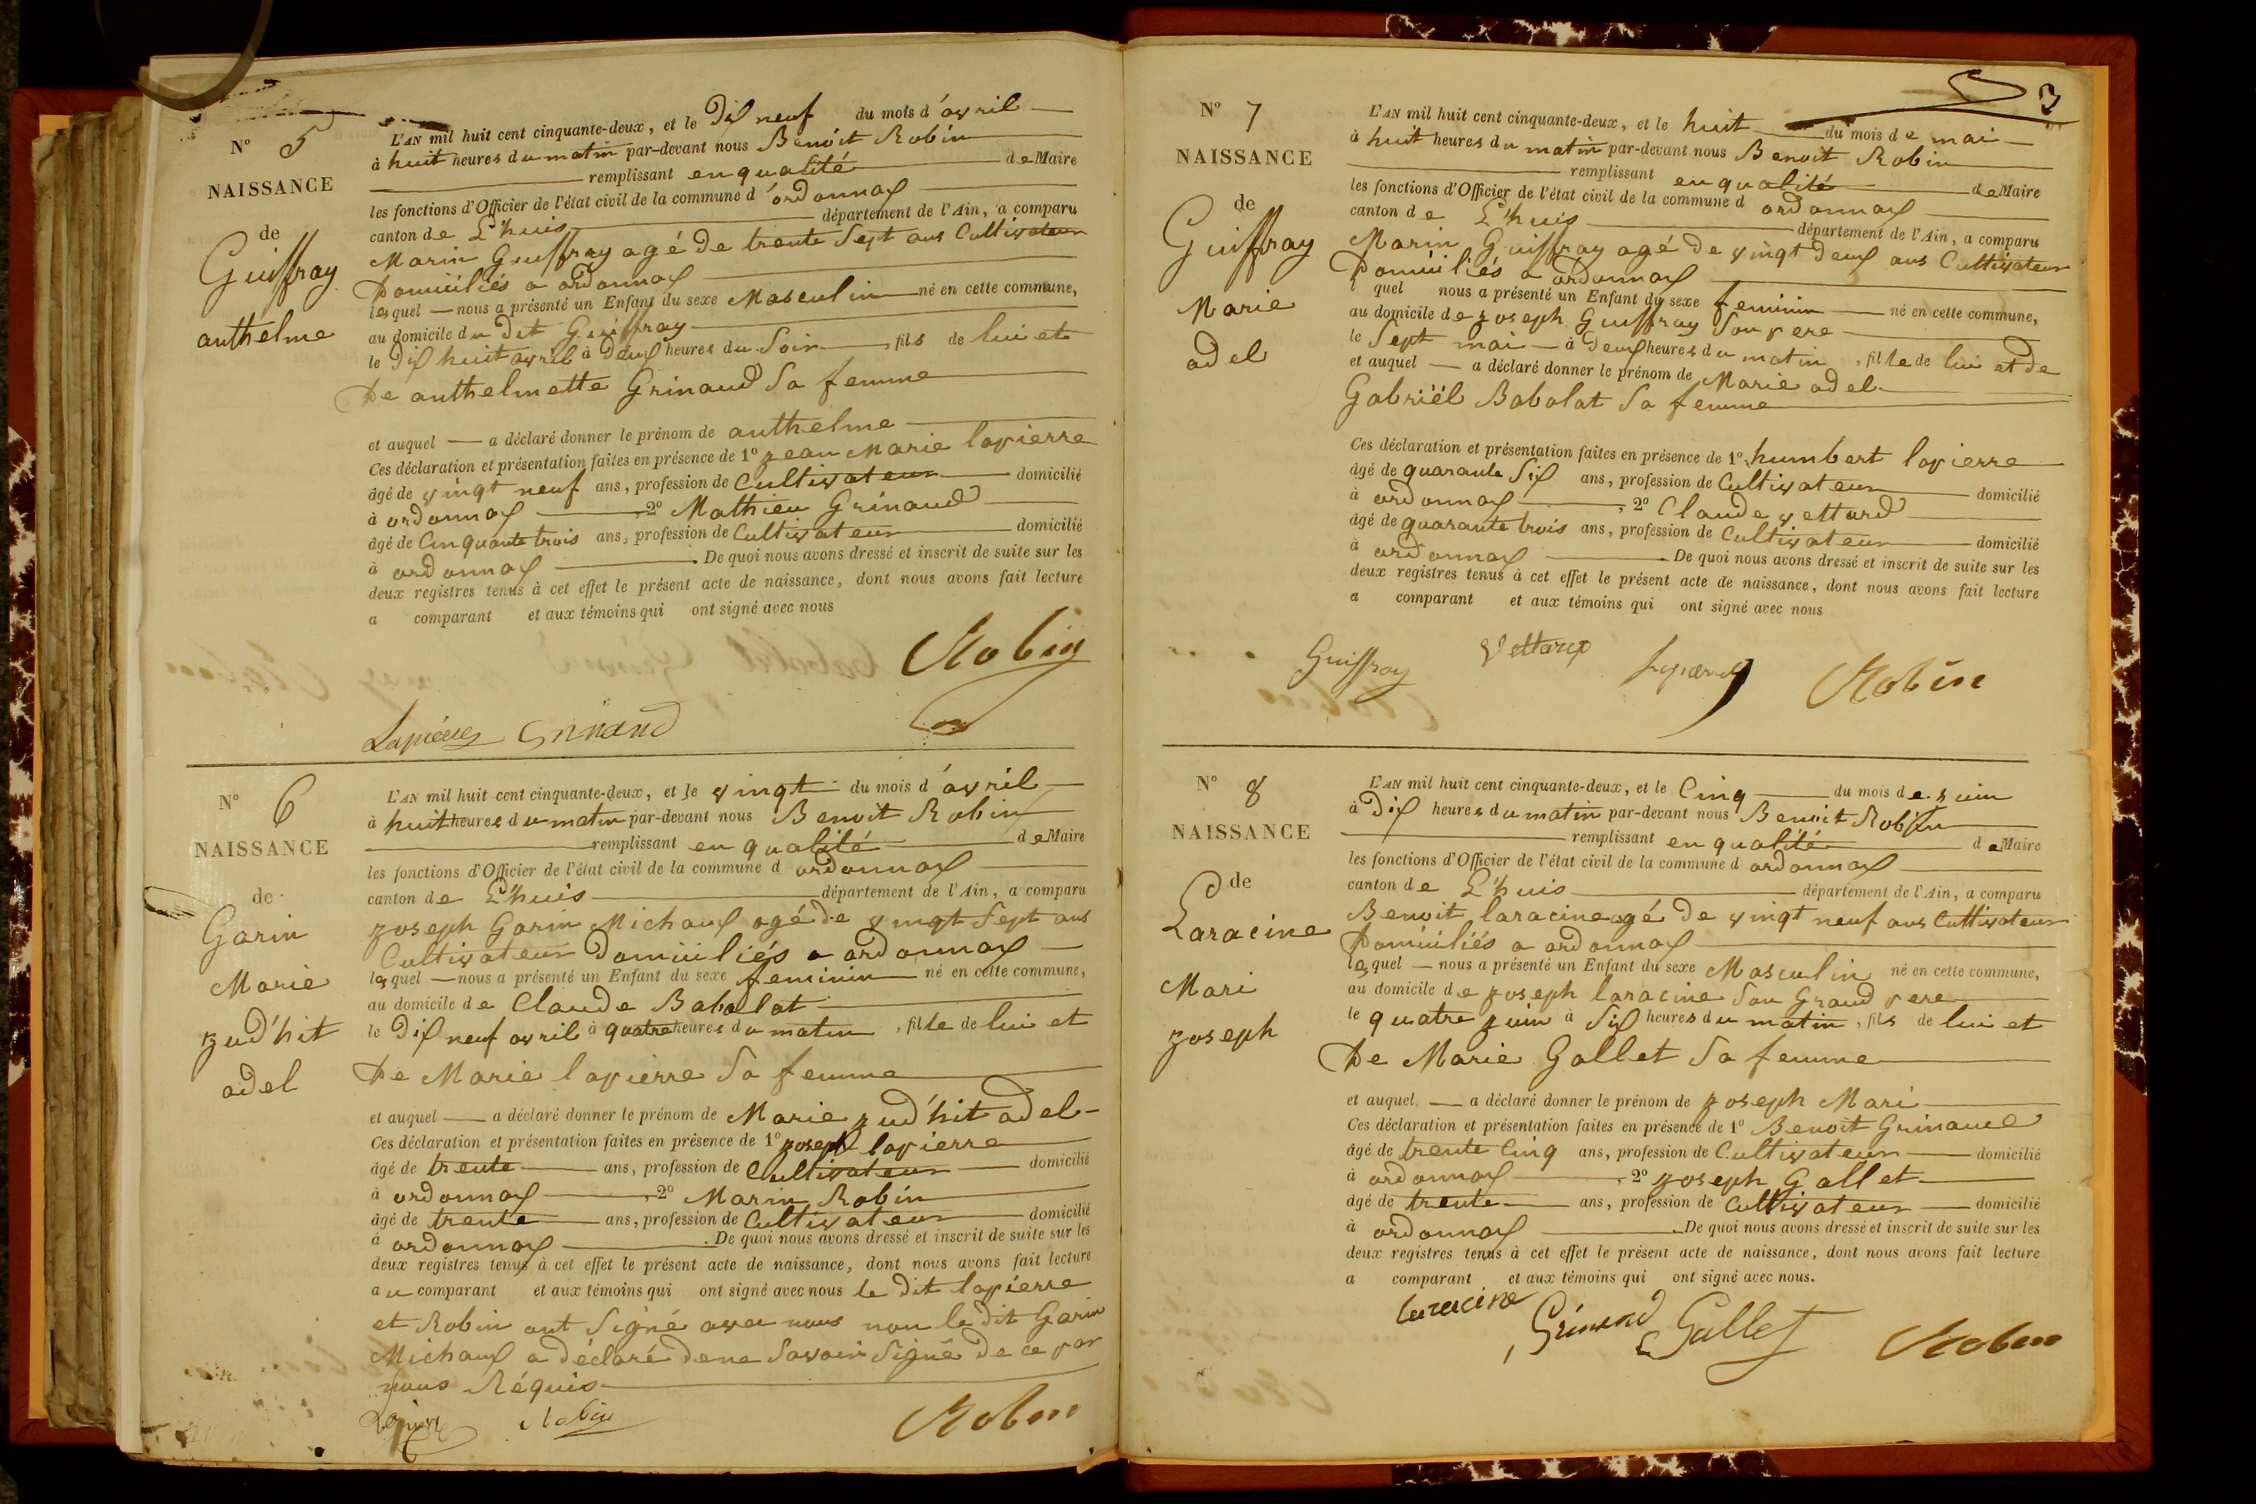 N° 5
NAISSANCE
de
Guiffray
anthelme
L'AN mil huit cent cinquante-deux, et le Dix neuf du mois d'avril
à huit heures du matin par-devant nous Benoit Robin
remplissant en qualité de Maire
les fonctions d'Officier de l'état civil de la commune d'ordonnax
canton de L'huis département de l'Ain, a comparu
Marin Guiffray agé de trente Sept ans Cultivateur
Domiciliés a ordonnax
lequel nous a présenté un Enfant du sexe Masculin né en cette commune,
au domicile du dit Guiffray
le Dix huit avril à Deux heures du Soir fils de lui et
De anthelmette Grinaud Sa femme
et auquel a déclaré donner le prénom de anthelme
Ces déclaration et présentation faites en présence de 1° Jean Marie lapierre
âgé de vingt neuf ans, profession de Cultivateur domicilié
à ordonnax , 2° Mathieu Grinaud
âgé de Cinquante trois ans, profession de Cultivateur domicilié
à ordonnax . De quoi nous avons dressé et inscrit de suite sur les
deux registres tenus à cet effet le présent acte de naissance, dont nous avons fait lecture
a comparant et aux témoins qui ont signé avec nous
Robin
Lapierre Grinaud
N° 6
NAISSANCE
de
Garin
Marie
Jud'hit
adel
L'AN mil huit cent cinquante-deux, et le vingt du mois d'avril
à huit heures du matin par-devant nous Benoit Robin
remplissant en qualité de Maire
les fonctions d'Officier de l'état civil de la commune d ordonnax
canton de L'huis département de l'Ain, a comparu
Joseph Garin Michaux agé de vingt Sept ans
Cultivateur Domiciliés a ordonnax
lequel nous a présenté un Enfant du sexe feminin né en cette commune,
au domicile de Claude Babolat
le Dix neuf avril à quatre heures du matin , fille de lui et
De Marie lapierre Sa femme
et auquel a déclaré donner le prénom de Marie Jud'hit adel
Ces déclaration et présentation faites en présence de 1° Joseph lapierre
âgé de trente ans, profession de Cultivateur domicilié
à ordonnax , 2° Marin Robin
âgé de trente ans, profession de Cultivateur domicilié
à ordonnax . De quoi nous avons dressé et inscrit de suite sur les
deux registres tenus à cet effet le présent acte de naissance, dont nous avons fait lecture
au comparant et aux témoins qui ont signé avec nous le dit lapierre
et Robin ont Signé avec nous non le dit Garin
Michaux a déclaré de ne Savoir Signé De ce par
nous Réquis
Lapierre Robin Robin
3
N° 7
NAISSANCE
de
Guiffray
Marie
adel
L'AN mil huit cent cinquante-deux, et le huit du mois de mai
à huit heures du matin par-devant nous Benoit Robin
remplissant en qualité de Maire
les fonctions d'Officier de l'état civil de la commune d ordonnax
canton de L'huis département de l'Ain, a comparu
Marin Guiffray agé de vingt deux ans Cultivateur
Domiciliés a ordonnax
l quel nous a présenté un Enfant du sexe feminin né en cette commune,
au domicile de Joseph Guiffray Son pere
le Sept mai à Deux heures du matin , fille de lui et de
et auquel a déclaré donner le prénom de Marie adel
Gabriël Babolat Sa femme
Ces déclaration et présentation faites en présence de 1° humbert lapierre
âgé de quarante Six ans, profession de Cultivateur domicilié
à ordonnax , 2° Claude vettard
âgé de quarante trois ans, profession de Cultivateur domicilié
à ordonnax . De quoi nous avons dressé et inscrit de suite sur les
deux registres tenus à cet effet le présent acte de naissance, dont nous avons fait lecture
a comparant et aux témoins qui ont signé avec nous
Guiffray Robin
N° 8
NAISSANCE
de
Laracine
Mari
Joseph
L'AN mil huit cent cinquante-deux, et le Cinq du mois de Juin
à Dix heures du matin par-devant nous Benoit Robin
remplissant en qualité de Maire
les fonctions d'Officier de l'état civil de la commune d ordonnax
canton de L'huis département de l'Ain, a comparu
Benoit laracine agé de vingt neuf ans Cultivateur
Domiciliés a ordonnax
lequel nous a présenté un Enfant du sexe Masculin né en cette commune,
au domicile de Joseph laracine Son Grand pere
le quatre Juin à Six heures du matin , fils de lui et
De Marie Gallet Sa femme
et auquel a déclaré donner le prénom de Joseph Mari
Ces déclaration et présentation faites en présence de 1° Benoit Grinaud
âgé de trente Cinq ans, profession de Cultivateur domicilié
à ordonnax , 2° Joseph Gallet
âgé de trente ans, profession de Cultivateur domicilié
à ordonnax . De quoi nous avons dressé et inscrit de suite sur les
deux registres tenus à cet effet le présent acte de naissance, dont nous avons fait lecture
a comparant et aux témoins qui ont signé avec nous.
laracine Grinand Gallet Robin